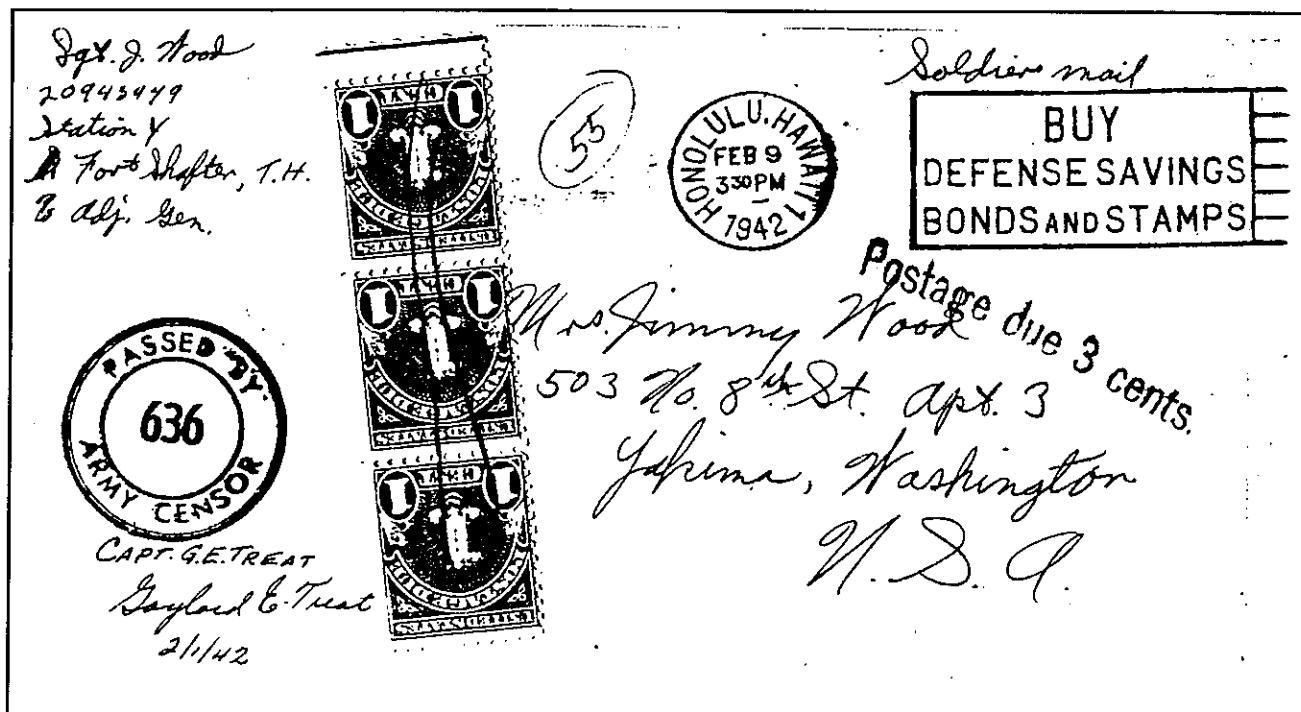 Sgt. J. Wood
20943479
Station Y
Fort Shafter, T.H.
% Adj. Gen.
55
HONOLULU, HAWAII 1
FEB 9
3 30 PM
1942
Soldiers mail
BUY
DEFENSE SAVINGS
BONDS AND STAMPS
Postage due 3 cents.
Mrs. Jimmy Wood
503 No. 8th St. Apt. 3
Yakima, Washington
U.S.A.
PASSED "BY"
636
ARMY CENSOR
CAPT. G.E. TREAT
Gaylord E. Treat
2/1/42
1 1
1 1
1 1